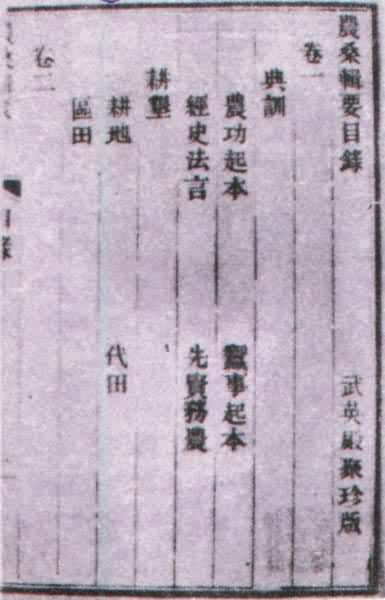 農桑輯要目錄 武英殿聚珍版
卷一
典訓
農功起本 蠶事起本
經史法言 先賢務農
耕墾
耕地 代田
區田
卷二
目錄